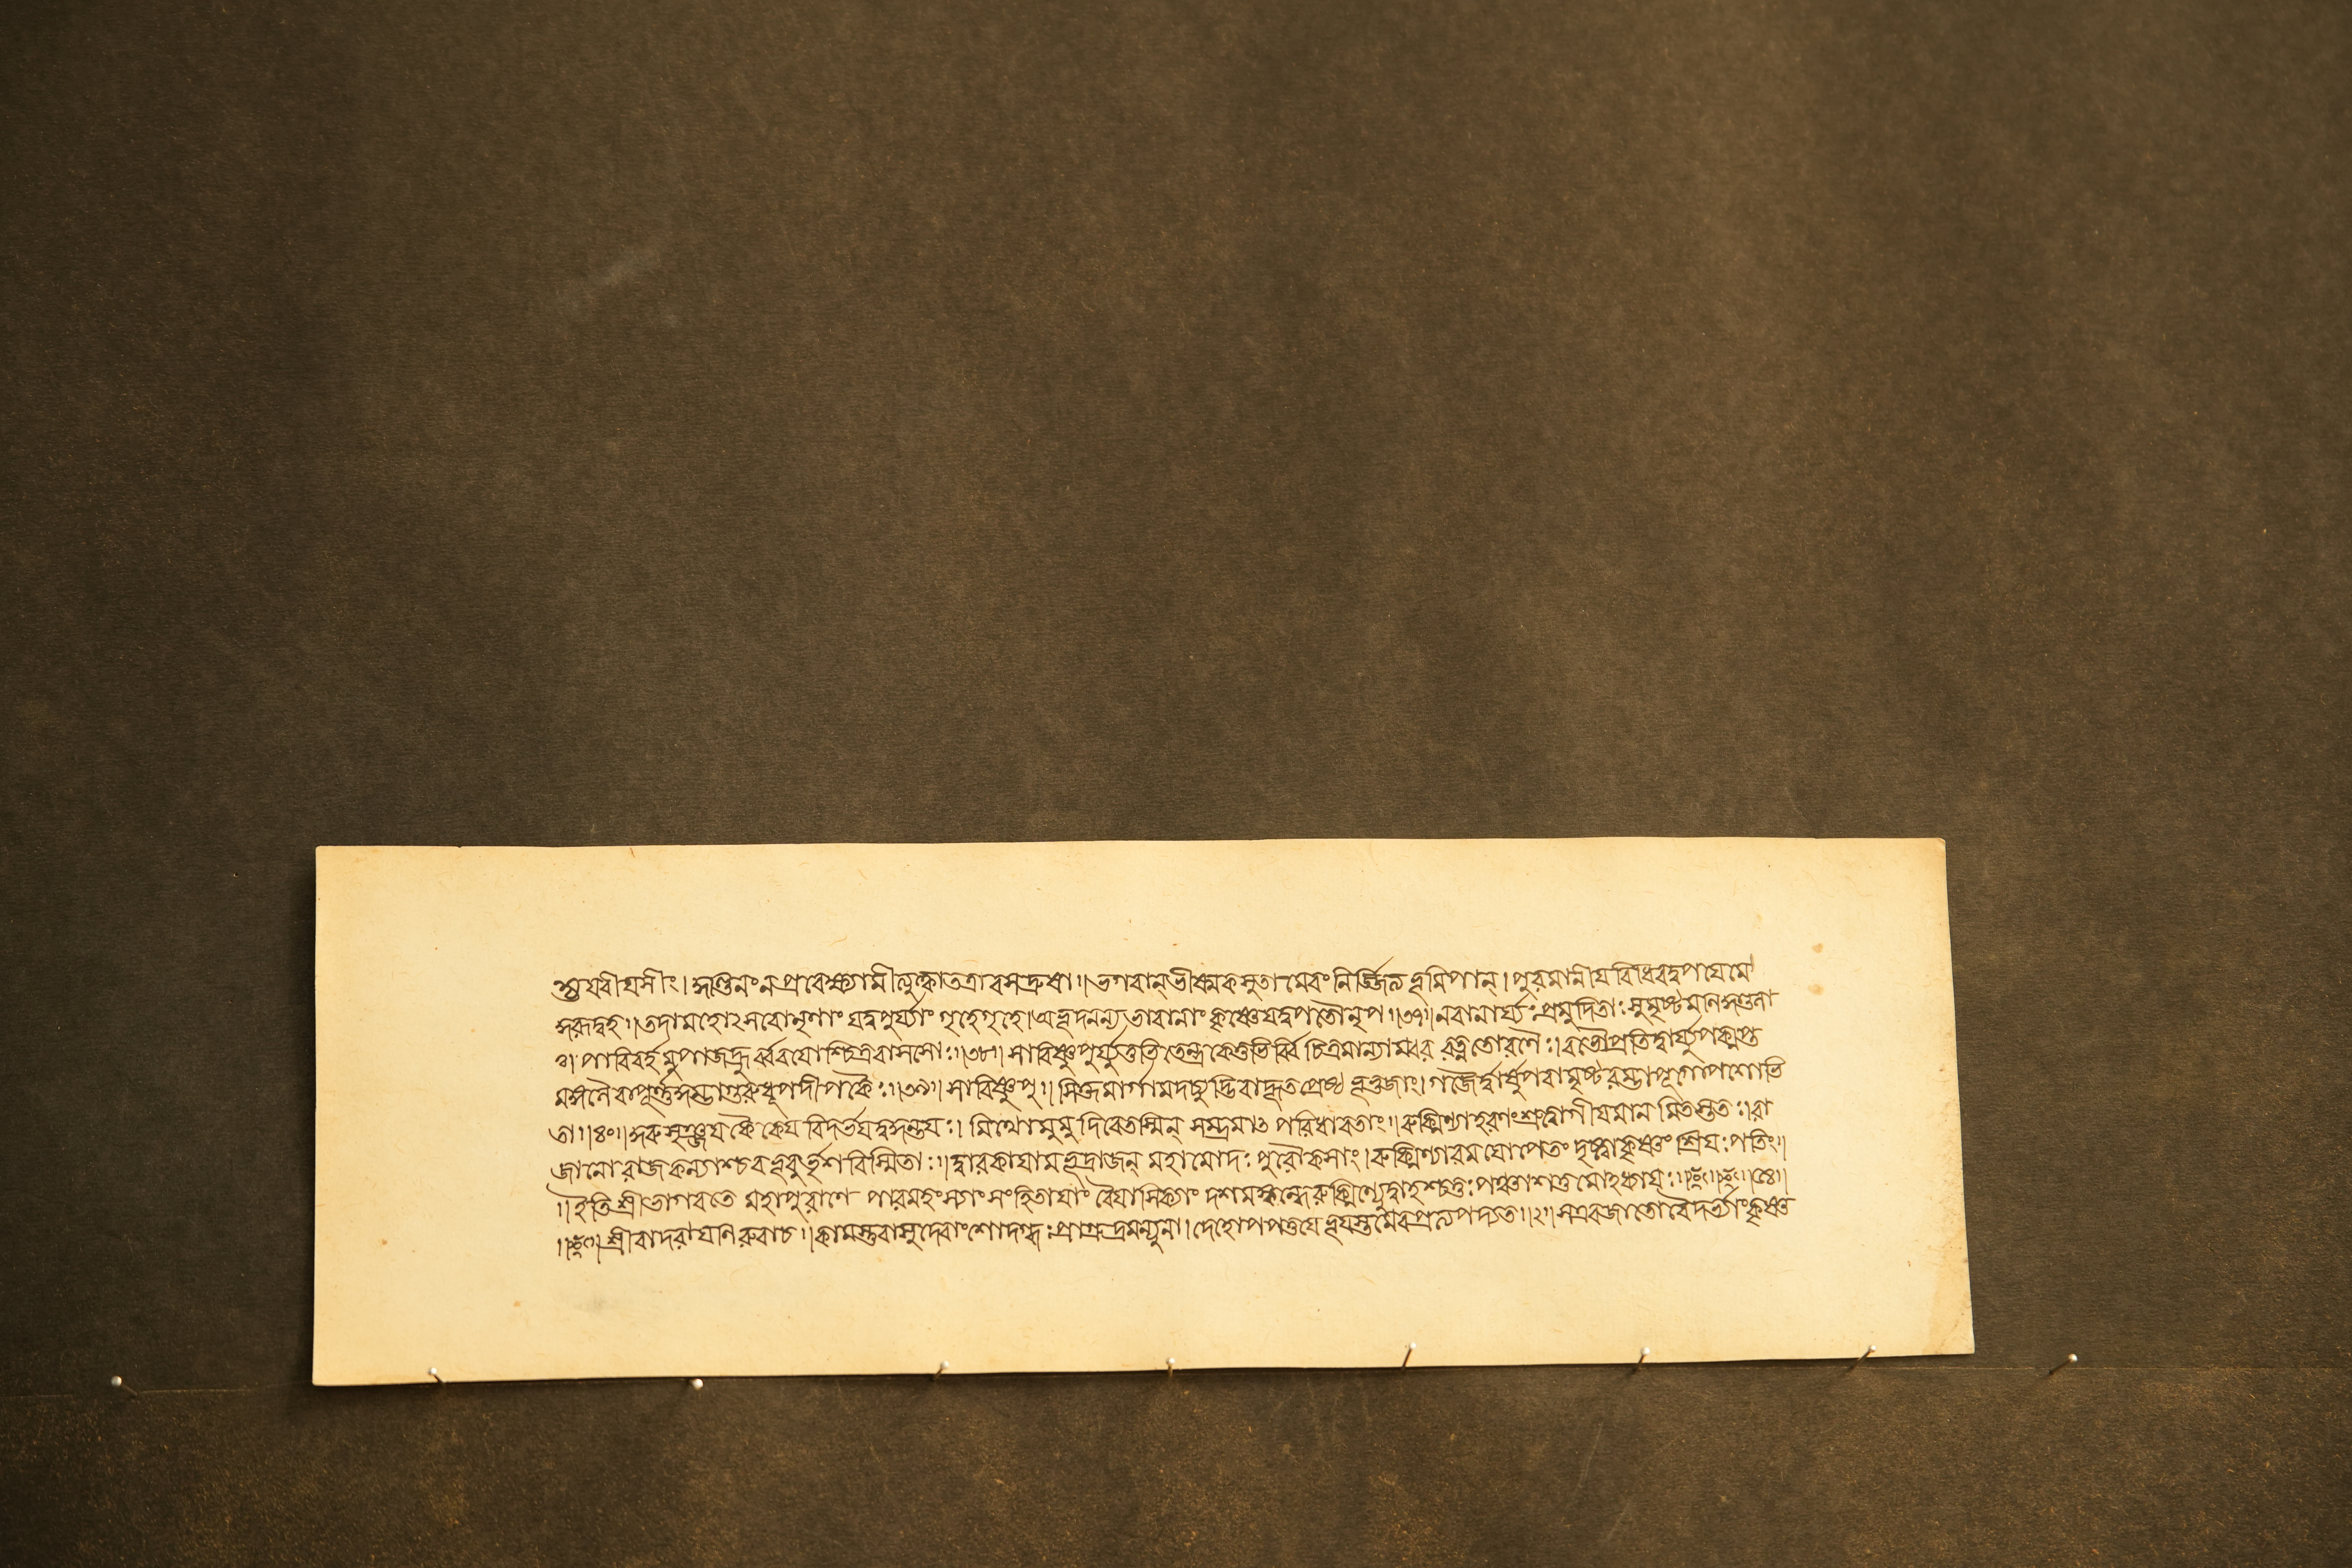 শ্চ যবীযসীং। কুণ্ডিনং ন প্রবেক্ষ্যামীত্যুক্ত্বা তত্রাবসদ্রুষা॥ ভগবান্ ভীষ্মকসুতামেবং নির্জ্জিত্য ভূমিপান্। পুরমানীয বিধিবদুপযেমে
কুরূদ্বহ॥ তদা মহোৎসবো নৃণাং যদুপুর্য্যাং গৃহে গৃহে। অভূদনন্যভাবানাং কৃষ্ণে যদুপতৌ নৃপ॥৩৭॥ নরা নার্য্যঃ প্রমুদিতাঃ সুমৃষ্টমণিকুণ্ডলা
ঃ। পারিবর্হমুপাজহ্রুর্ব্বরযোশ্চিত্রবাসসোঃ॥৩৮॥ সা বিষ্ণুপুর্য্যুত্তভিতেন্দ্রকেতুভির্ব্বিচিত্রমাল্যাম্বর রত্নতোরণৈঃ। বভৌ প্রতিদ্বার্য্যুপকৢপ্ত
মঙ্গলৈরাপূর্ণ্ণকুম্ভাগুরুধূপদীপকৈঃ॥৩৯॥ সা বিষ্ণুপু॥ সিক্তমার্গামদচ্যুদ্ভিরাহূতপ্রেষ্ঠ ভূভুজাং। গজৈর্দ্বার্ষুপরামৃষ্টরম্ভাপূগোপশোভি
তা॥৪০॥ কুরুসৃঞ্জযকৈকেয বিদর্ভযদুকুন্তযঃ। মিথো মুমুদিরে তস্মিন্ সম্ভ্রমাৎ পরিধাবতাং॥ রুক্মিণ্যাহরণং শ্রুত্বা গীযমানমিতস্ততঃ। রা
জানো রাজকন্যাশ্চ বভূবুর্ভৃশবিস্মিতাঃ॥ দ্বারকাযামভূদ্রাজন্ মহামোদঃ পুরৌকসাং। রুক্মিণ্যা রমযোপেতং দৃষ্ট্বা কৃষ্ণং শ্রিযঃ পতিং॥
॥ ইতি শ্রীভাগবতে মহাপুরাণে পারমহংস্যাং সংহিতাযাং বৈযাসিক্যাং দশমস্কন্ধে রুক্মিণ্যুদ্বাহশ্চতুঃপঞ্চাশত্তমোঽধ্যাযঃ॥ ॥৫৪॥
॥ শ্রীবাদরাযনিরুবাচ॥ কামস্তু বাসুদেবাংশো দগ্ধঃ প্রাগ্রুদ্রমন্যুনা। দেহোপপত্তযে ভূযস্তমেব প্রত্যপদ্যত॥২॥ স এব জাতো বৈদর্ভ্যাং কৃষ্ণ